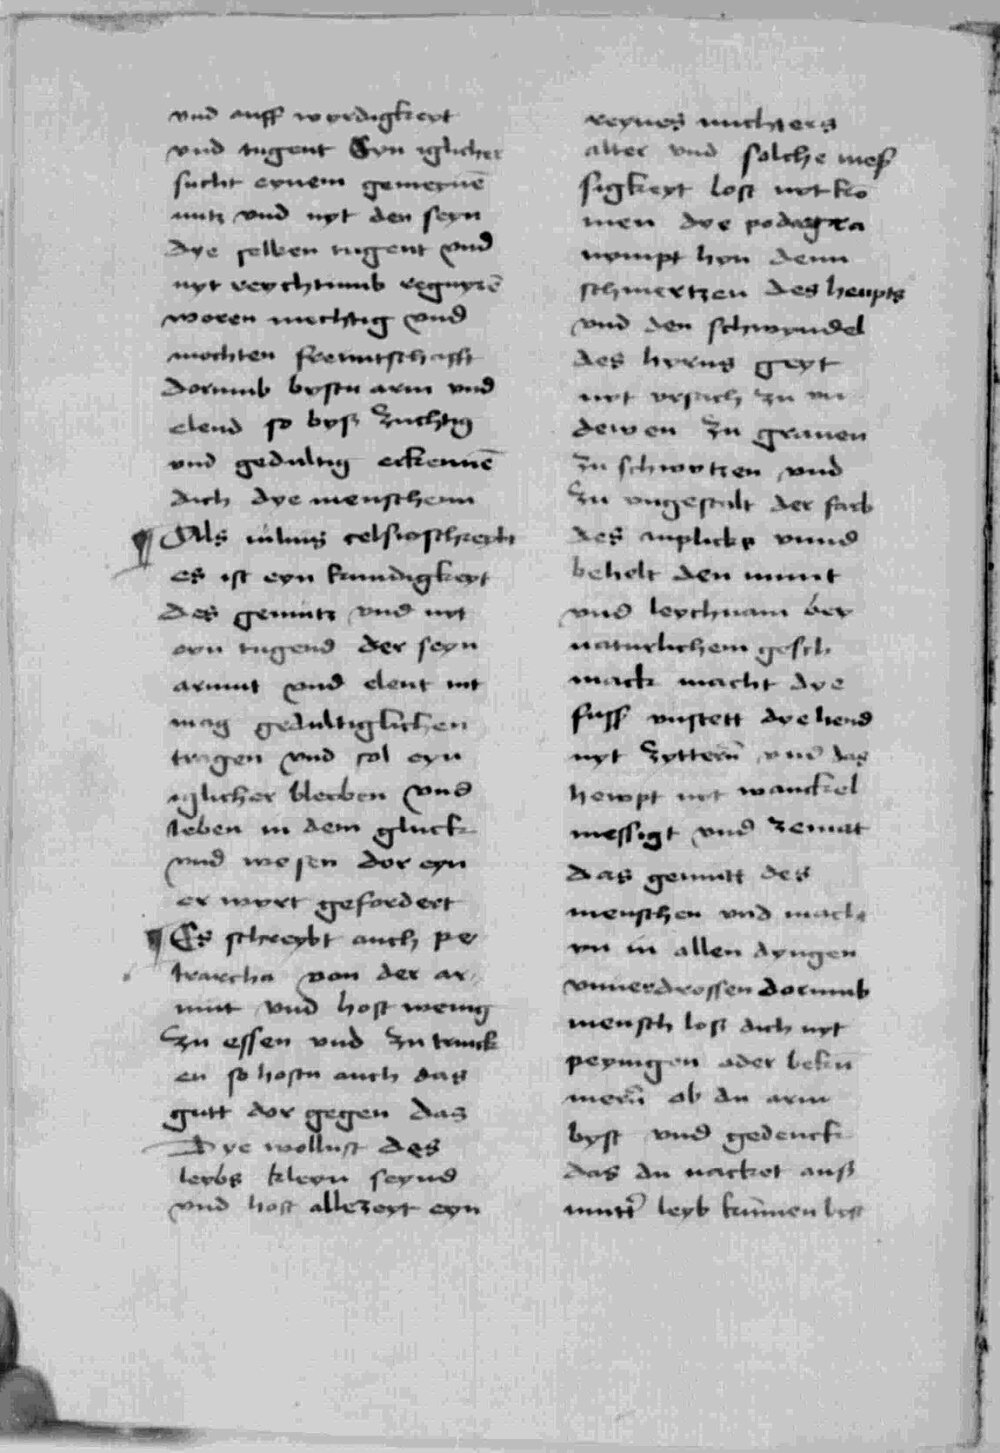 vnd auff wyrdigkeyt
vnd tugent Eyn iglicher
sucht eynem gemeynē
nutz vnd nyt den seyn
dye selben tugent vnd
nyt reychtumb regnyrē
woren mechtig vnd
mochten freuntschafft
dorumb bystu arm vnd
elend so byß zuchtig
vnd gedultig erkennē
dich dye menschenn
¶ Als iulius celsus schreybt
es ist eyn kundigkeyt
des gemutz vnd nyt
on tugend der seyn
armut vnd elent mit
mag gedultiglichen
tragen vnd sol eyn
iglicher bleyben vnd
leben in dem gluck
vnd wesen dor eyn
er wyrt gefordert
¶ Es schreybt auch pe
trarcha von der ar
mut vnd host wenig
zu essen vnd zu trinck
en so hostu auch das
gutt dor gegen das
Dye wollust des
leybs kleyn seynd
vnd host allezeyt eyn
reynes nuchters
alter vnd solche mes
sigkeyt lost nyt ko
men dye podagra
nympt hyn denn
schmertzen des heupts
vnd den schwyndel
des hyrns geyt
nyt vrsach zu vn
dewen zu grawen
zu schwytzen vnd
zu vngestalt der farb
des anplicks vnnd
behelt den munt
vnd leychnam bey
naturlichem gesch
mack macht dye
fuss vnstett dye hend
nyt zytternn vnd das
hewpt nyt wanckel
messigt vnd zemat
das gemutt des
menschen vnd macht
yn in allen dyngen
vnuerdrossen dorumb
mensch lost dich nyt
peynigen oder bekū
mern ob du arm
byst vnd gedenck
das du nacket auß
mutter leyb kummen byst